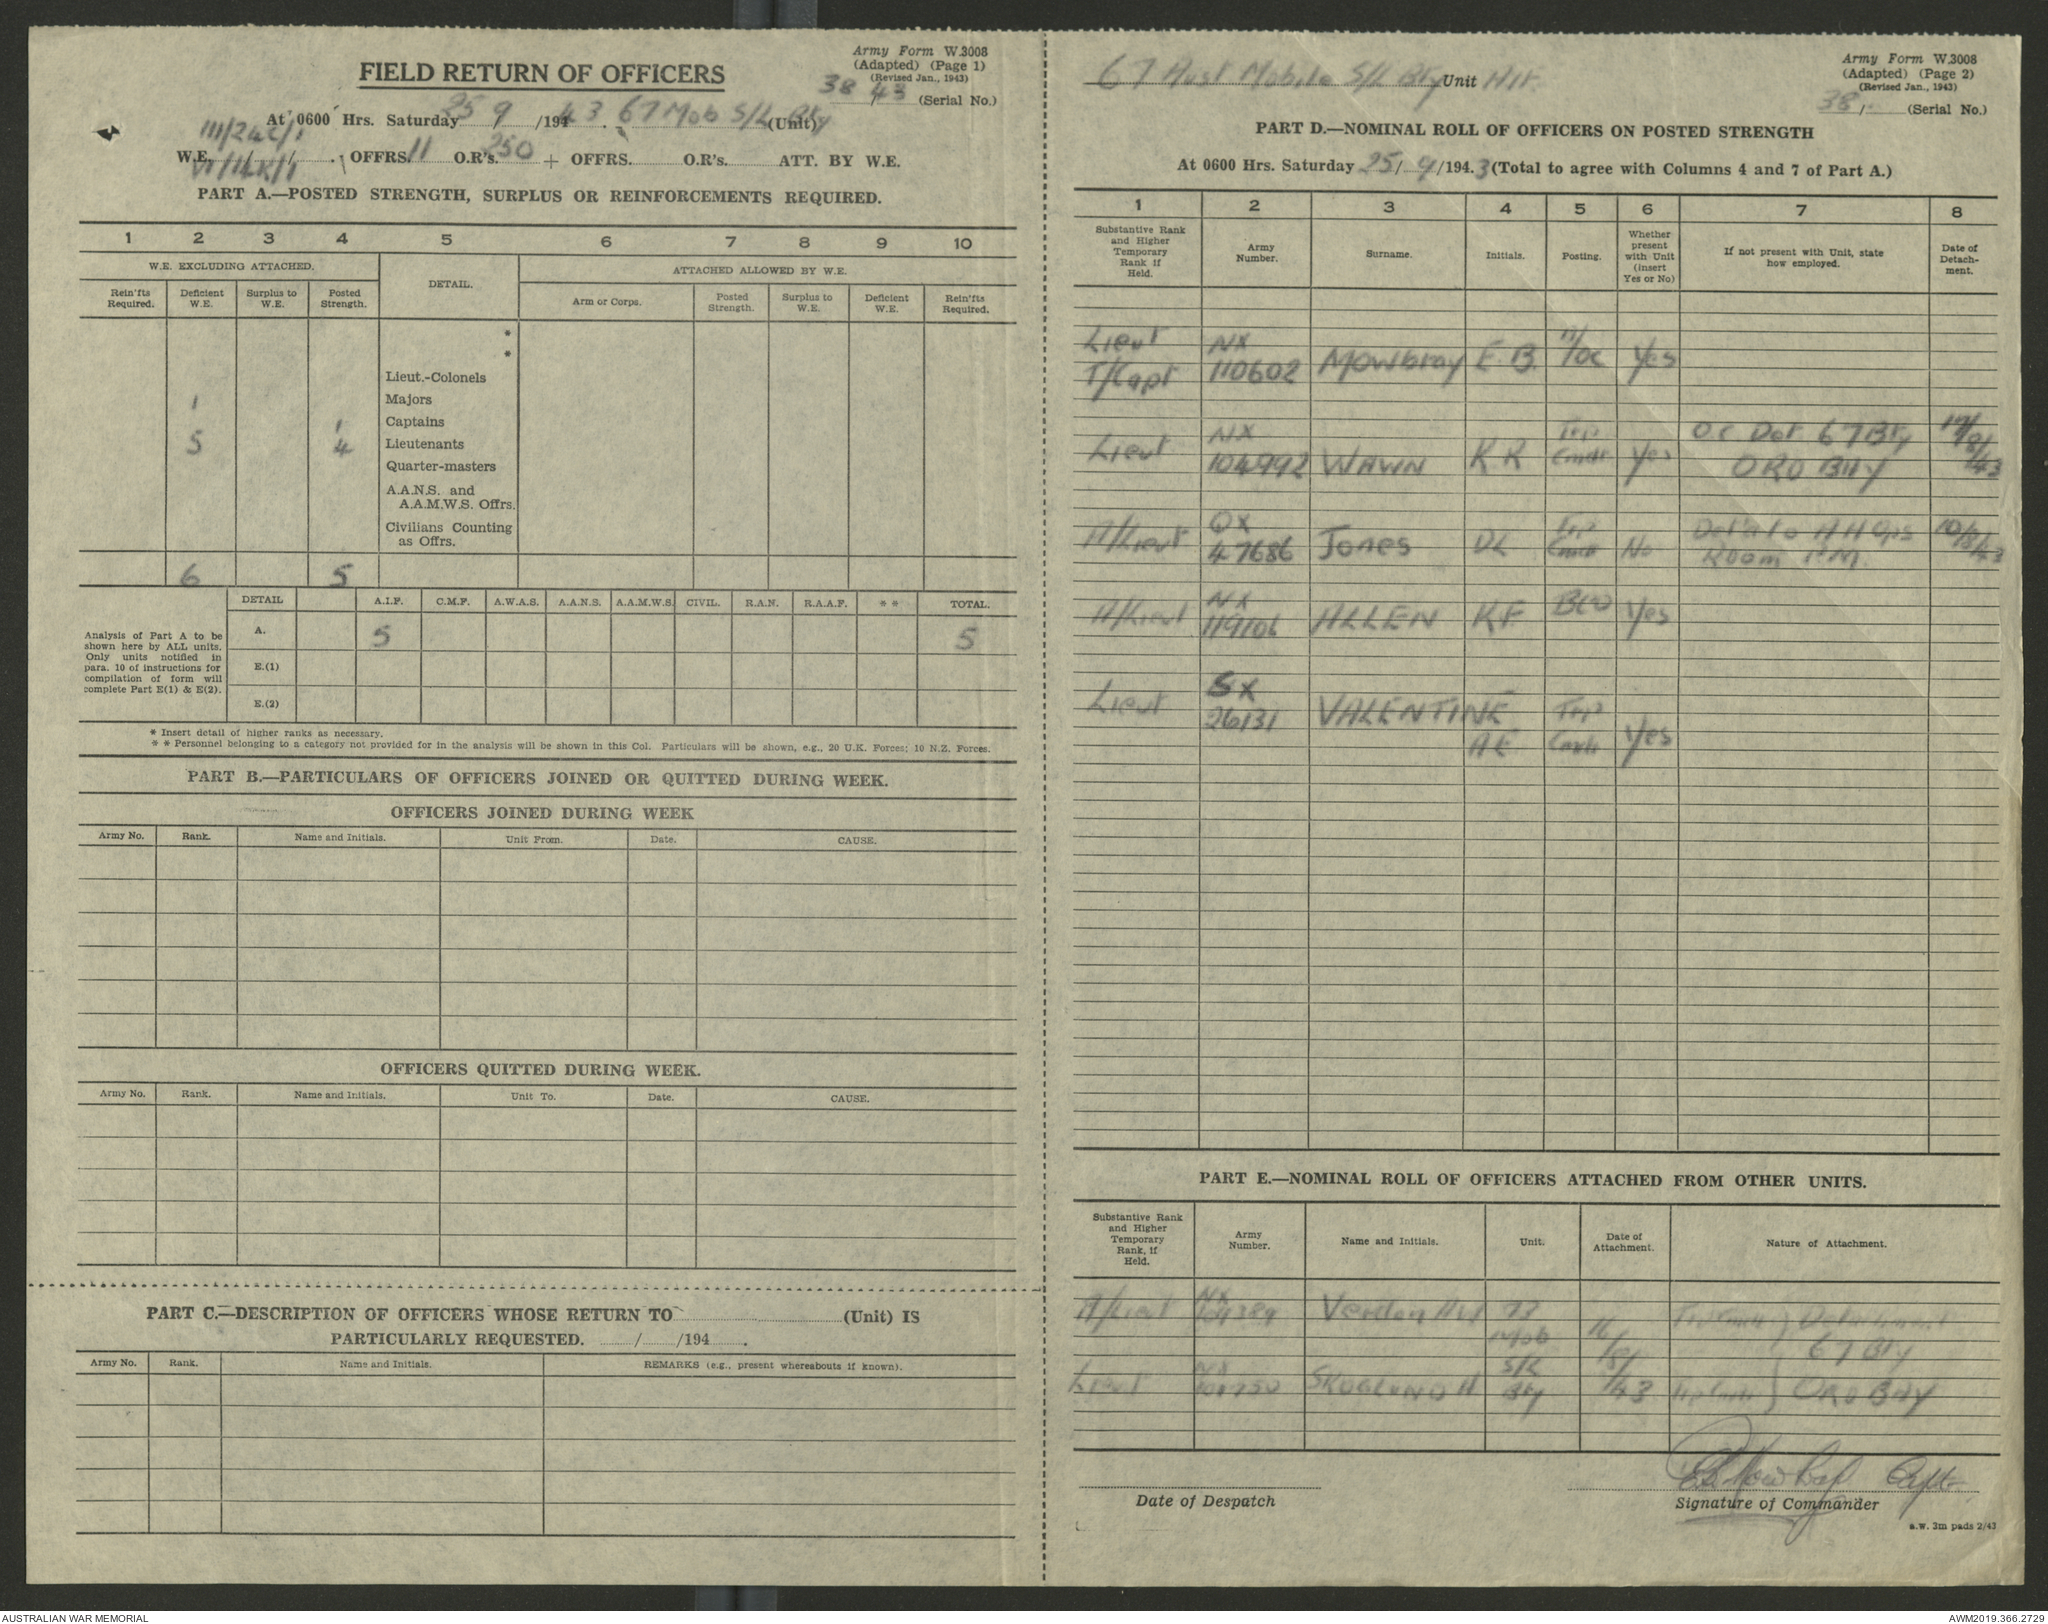 Army Form W.3008
(Adapted) (Page 1)
(Revised Jan., 1943)
38/43 (Serial No.)
FIELD RETURN OF OFFICERS
At 0600 Hrs. Saturday 25/9/1943. 67 Mob S/L Bty (Unit)
W.E. OFFRS. 11 O.R's. 250 + OFFRS. O.R's. ATT. BY W.E.
PART A.—POSTED STRENGTH, SURPLUS OR REINFORCEMENTS REQUIRED.
1 2 3 4 5 6 7 8 9 10
W.E. EXCLUDING ATTACHED. DETAIL. ATTACHED ALLOWED BY W.E.
Rein'fts Required. Deficient W.E. Surplus to W.E. Posted Strength. Arm or Corps. Posted Strength. Surplus to W.E. Deficient W.E. Rein'fts Required.
*
*
Lieut.-Colonels
1 Majors
1 Captains
5 4 Lieutenants
Quarter-masters
A.A.N.S. and
A.A.M.W.S. Offrs.
Civilians Counting
as Offrs.
6 5
DETAIL A.I.F. C.M.F. A.W.A.S. A.A.N.S. A.A.M.W.S. CIVIL. R.A.N. R.A.A.F. ** TOTAL.
Analysis of Part A to be
shown here by ALL units.
Only units notified in
para. 10 of instructions for
compilation of form will
complete Part E(1) & E(2).
A. 5 5
E.(1)
E.(2)
* Insert detail of higher ranks as necessary.
* * Personnel belonging to a category not provided for in the analysis will be shown in this Col. Particulars will be shown, e.g., 20 U.K. Forces; 10 N.Z. Forces.
PART B.—PARTICULARS OF OFFICERS JOINED OR QUITTED DURING WEEK.
OFFICERS JOINED DURING WEEK
Army No. Rank. Name and Initials. Unit From. Date. CAUSE.
OFFICERS QUITTED DURING WEEK.
Army No. Rank. Name and Initials. Unit To. Date. CAUSE.
PART C.—DESCRIPTION OF OFFICERS WHOSE RETURN TO (Unit) IS
PARTICULARLY REQUESTED. / /194 .
Army No. Rank. Name and Initials. REMARKS (e.g., present whereabouts if known).
Army Form W.3008
(Adapted) (Page 2)
(Revised Jan., 1943)
38/ (Serial No.)
67 Aust Mobile S/L Bty Unit
PART D.—NOMINAL ROLL OF OFFICERS ON POSTED STRENGTH
At 0600 Hrs. Saturday 25/9/1943 (Total to agree with Columns 4 and 7 of Part A.)
1 2 3 4 5 6 7 8
Substantive Rank and Higher Temporary Rank if Held. Army Number. Surname. Initials. Posting. Whether present with Unit (insert Yes or No) If not present with Unit, state how employed. Date of Detachment.
Lieut NX
T/Capt 110602 Mowbray E.B. T/OC Yes
Lieut NX 104992 WAWN KR Trp Cmdr Yes O.C Det 67 Bty ORO BAY 17/8/43
A/Lieut QX 47686 Jones DL Trp Cmdr No Det'd to AA Ops Room P.M. 10/8/43
A/Lieut NX 119106 ALLEN KF BCO Yes
Lieut SX 26131 VALENTINE AE Trp Cmdr Yes
PART E.—NOMINAL ROLL OF OFFICERS ATTACHED FROM OTHER UNITS.
Substantive Rank and Higher Temporary Rank, if Held. Army Number. Name and Initials. Unit. Date of Attachment. Nature of Attachment.
A/Lieut NX Verdon 73 Mob S/L Bty 16/8/43 Trp Cmdr } Detachment 67 Bty
Lieut NX SKOGLUND H Trp Cmdr } ORO BAY
EB Mowbray Capt.
Date of Despatch
Signature of Commander
a.w. 3m pads 2/43
AUSTRALIAN WAR MEMORIAL
AWM2019.366.2729